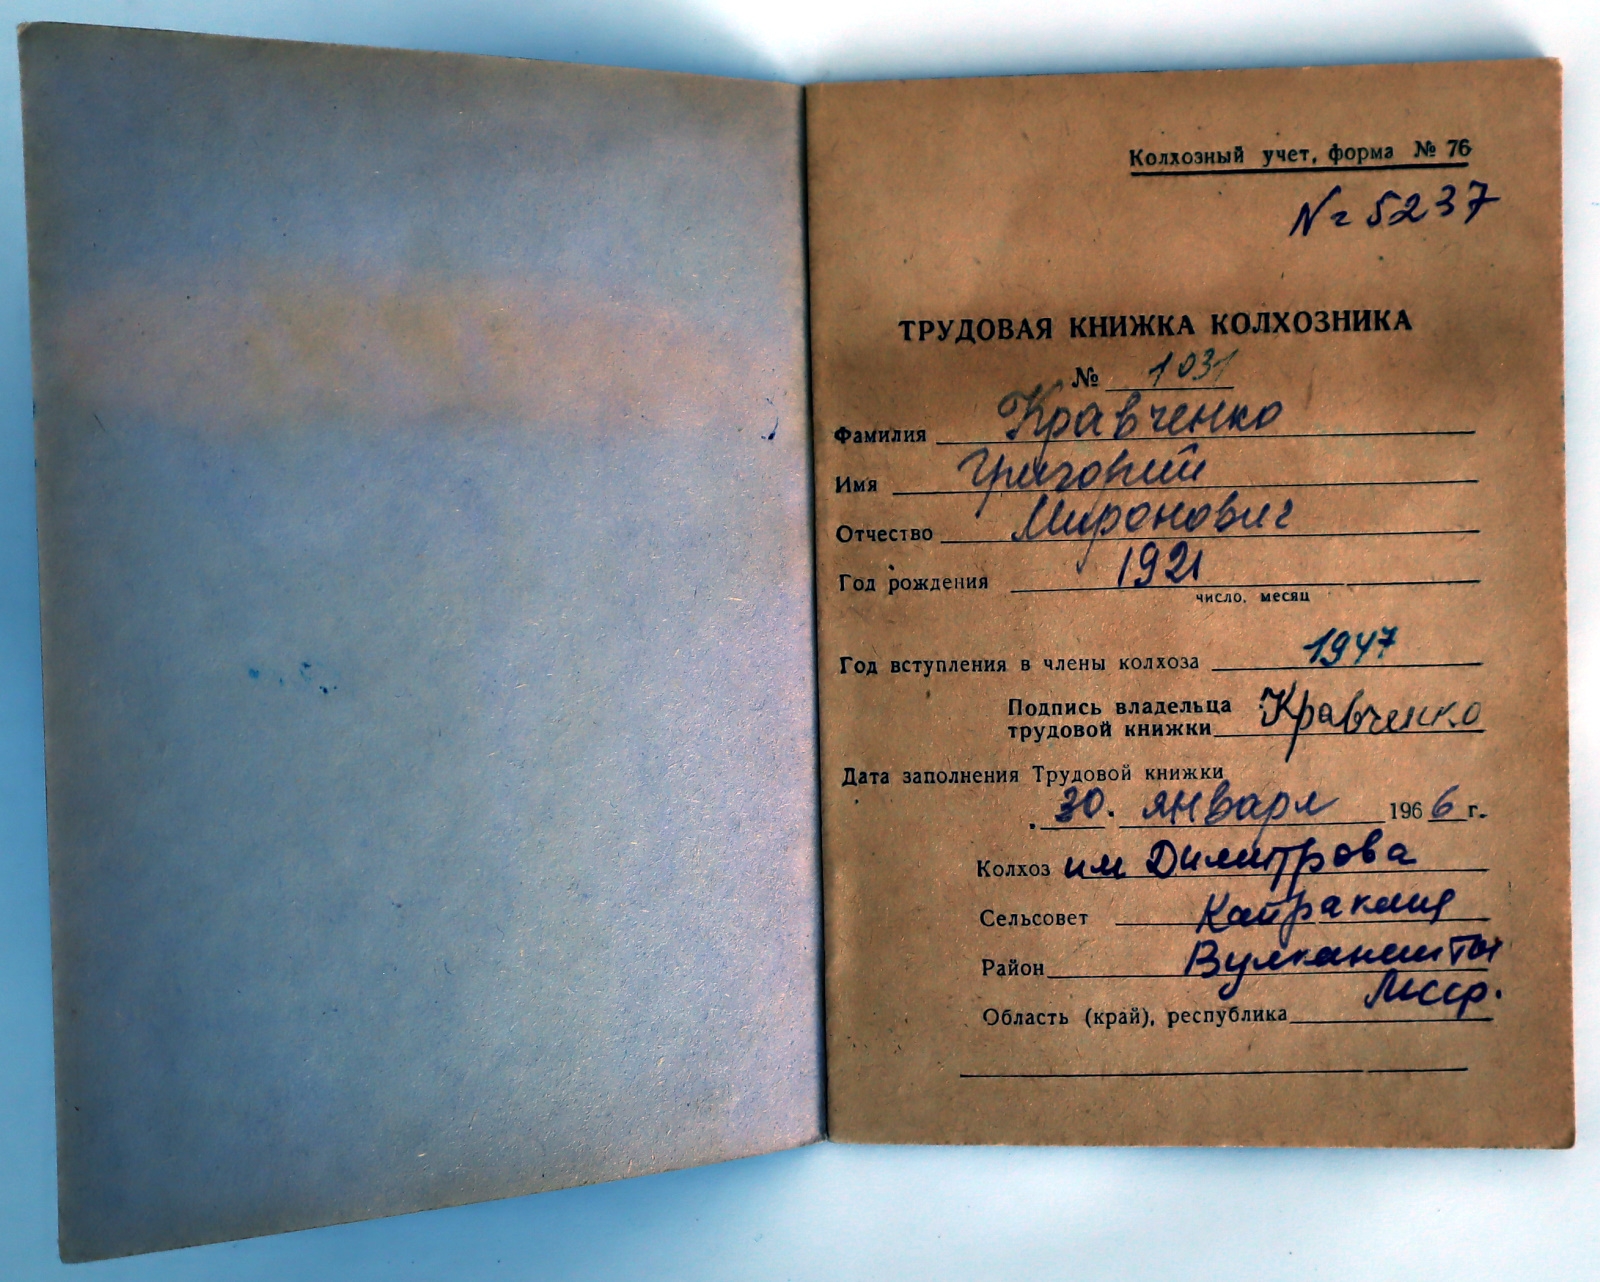 Колхозный учет, форма № 76
№ 5237
ТРУДОВАЯ КНИЖКА КОЛХОЗНИКА
№ 1031
Фамилия Кравченко
Имя Григорий
Отчество Миронович
Год рождения 1921
число, месяц
Год вступления в члены колхоза 1947
Подпись владельца
трудовой книжки Кравченко
Дата заполнения Трудовой книжки
30. января 1966 г.
Колхоз им Димитрова
Сельсовет Кайраклия
Район Вулканешты
Область (край), республика Мсср.